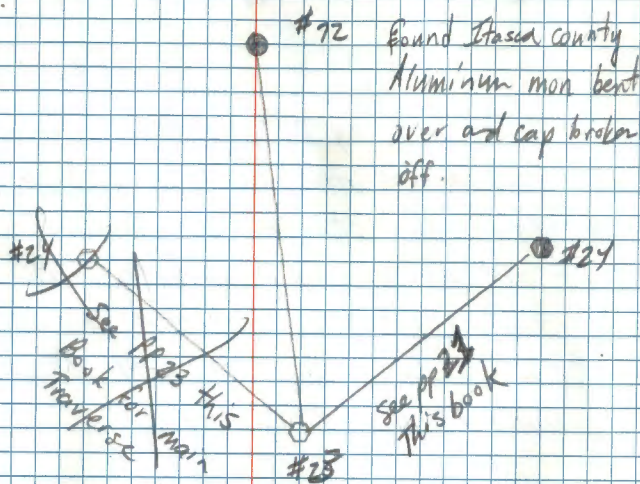 #72
Found Itasca county
Aluminum mon bent
over and cap broken
off.
#24
See pp 23 this
Book for main
Traverse
#24
See pp
This book
#23